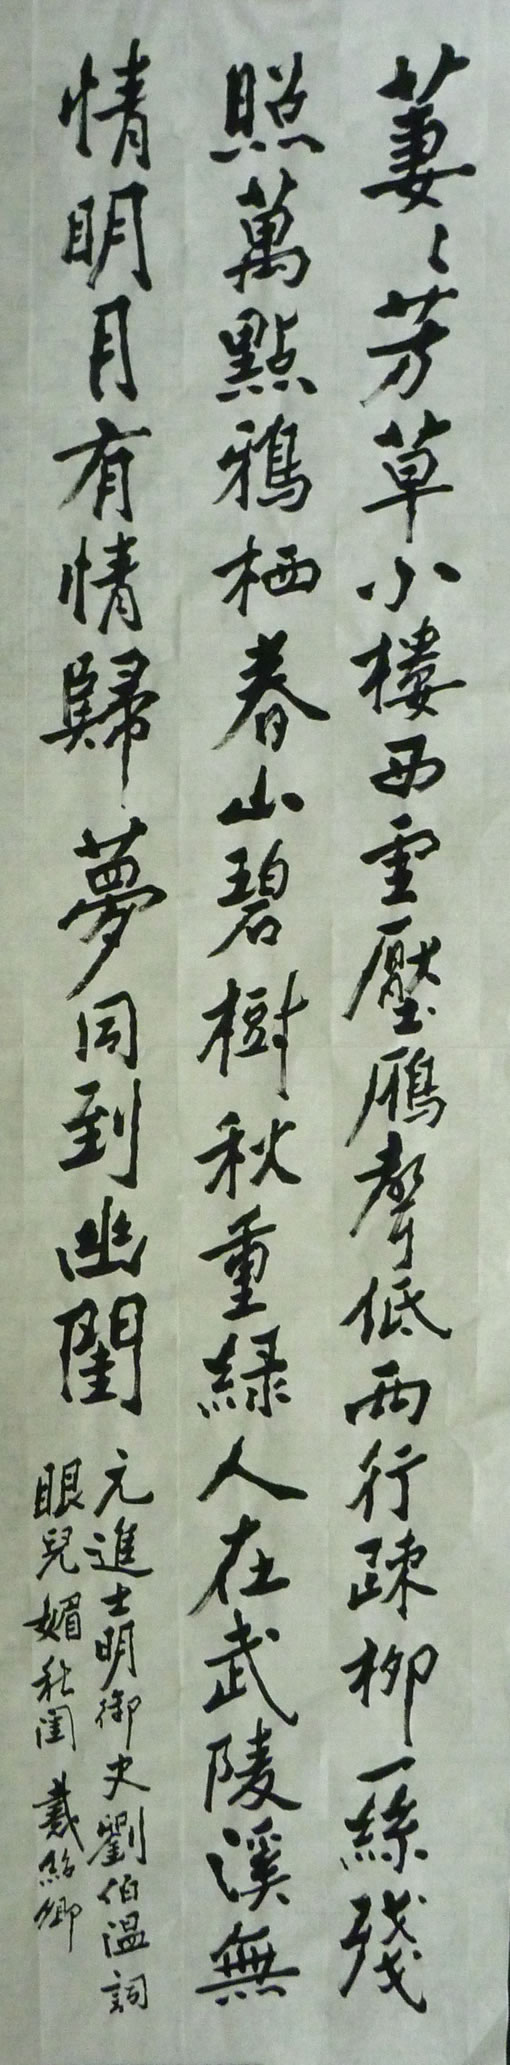 萋〻芳草小樓西雲壓雁聲低兩行疎柳一絲殘
照萬點鴉栖春山碧樹秋重綠人在武陵溪無
情明月有情歸夢同到幽閨
元進士明御史劉伯溫詞
眼兒媚秋閨 戴紹卿